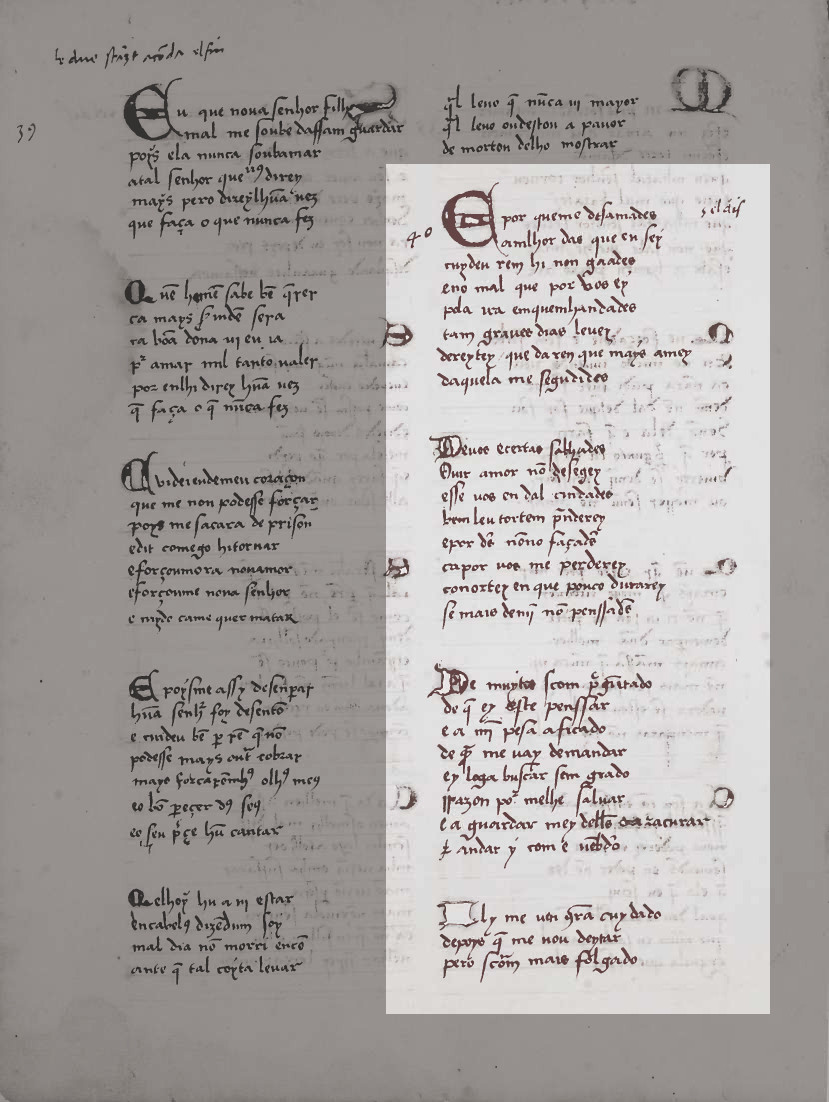 39
Eu que nova senhor filhey
mal me soube dassam guardar
poys ela nunca soubamar
atal senhor que vus direy
mays pero direylhuã vez
que faça o que nunca fez
Quē homē sabe bē q̄rer
ca mays s̄indē sera
ca bōa dona vi eu ia
pr amar mil tanto valer
por enlhi direy huã vez
q̄ faça o q̄ nūca fez
Cuidei eu de meu coraçon
que me non podesse forçar
poys me sacara de prison
edir comego hi tornar
e forçoumora novamor
e forçoume nova senhor
e cuydo ca me quer matar
E poysme assy desenpar
huã senhr foy desentō
e cuideu bē per rē q̄ nō
podesse mays outr cobrar
mays forcarōmh9 olh9 meus
eo bō pareçer d9 seus
eo seu preçe hū cantar
Quelhoy hu a vi estar
en cabelos dizēdum soy
mal dia nō morri entō
ante q̄ tal coyta levar
q̄l levo q̄ nūca vi mayor
de morton delho mostrar
40
E por queme desamades
a melhor das que eu sey
cuydeu rem hi non gaades
eno mal que por vos ey
pola ira em que mh andades
tam graves dias levey
dereytey que da ren que mays amey
daquela me segudides
De vos e certas sabhades
Ouir amor nō desegey
esse vos en dal cuidades
bem leu tortem prenderey
e por ds nōno façades
ca por vos me perderey
conortey en que pouco durarey
se mais demī nō penssades
De muytos som preguntado
de q̄ ey este penssar
e a mī pesa aficado
de quē me vay demandar
ey loga buscar sem grado
razon por me lhe salvar
e a guardar mey dello
e andar y com e
Aly me ven grā cuydado
depoys q̄ me vou deytar
pero scom mais folgado